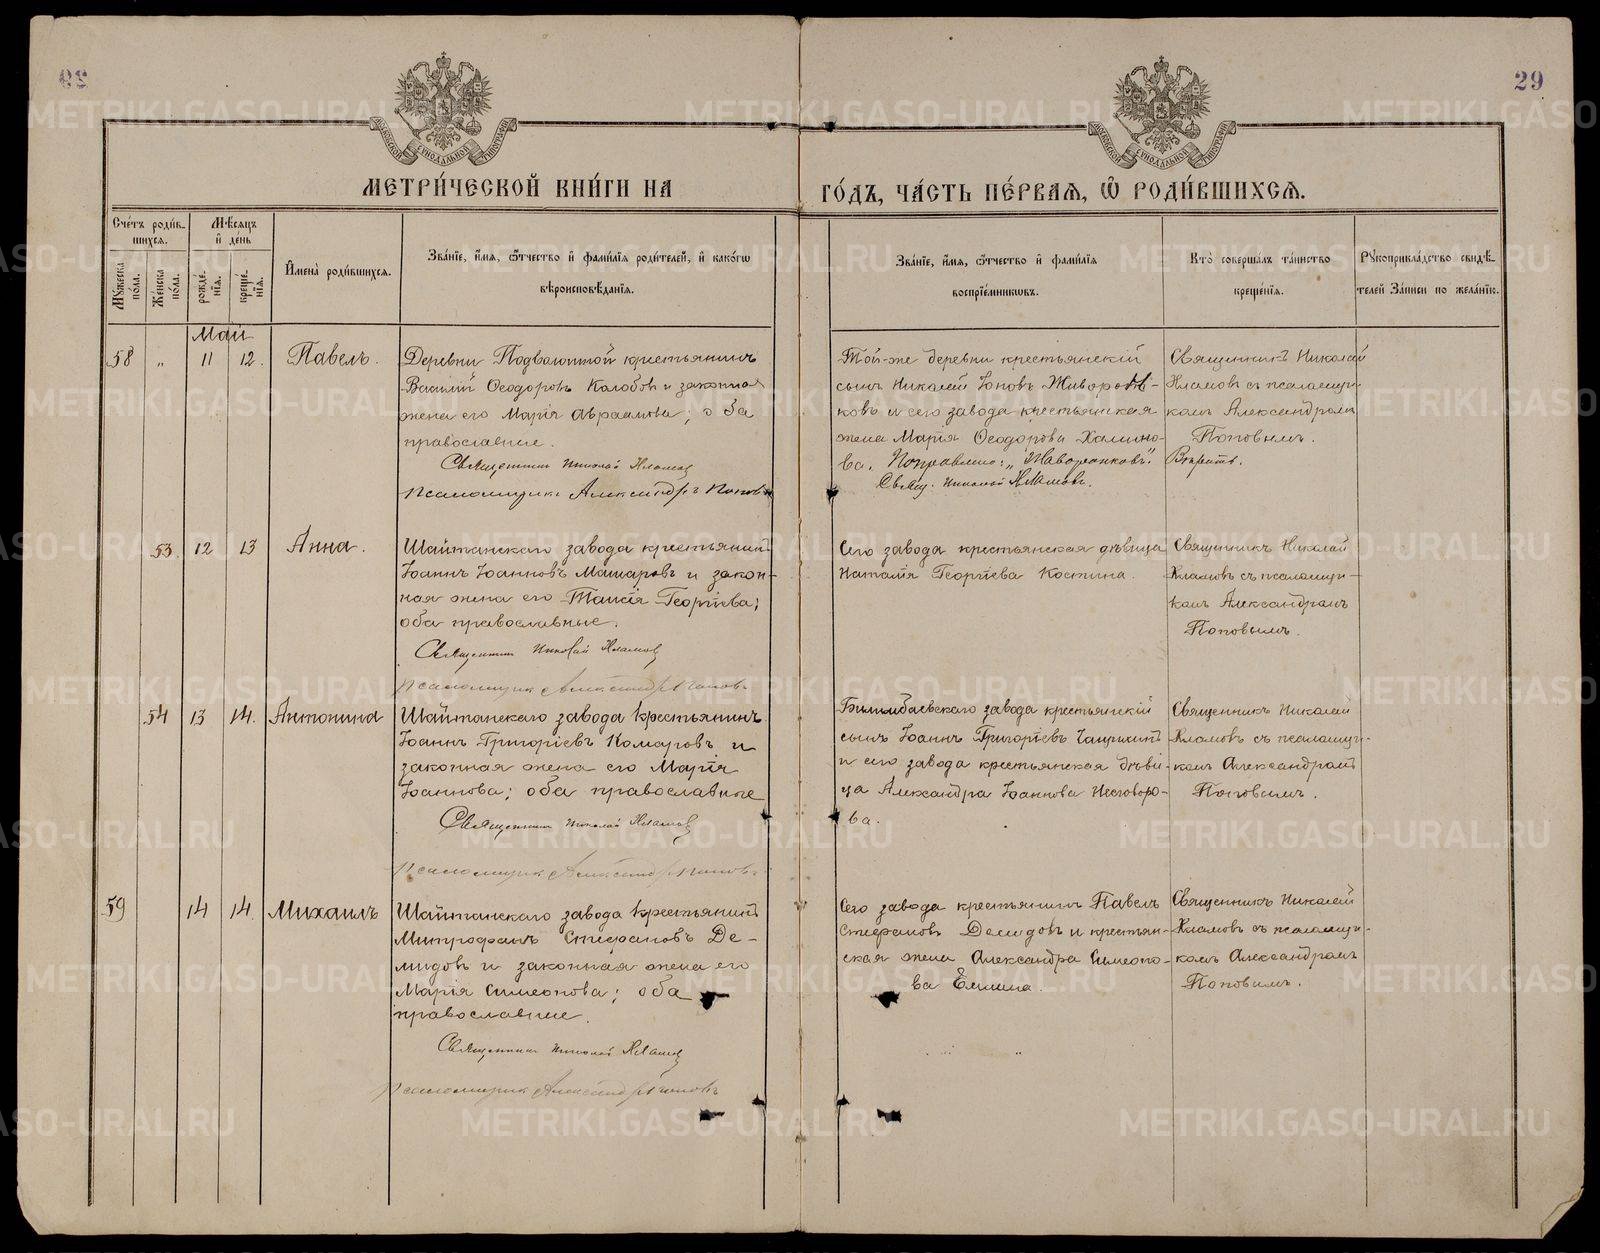 29
МЕТРИ́ЧЕСКОЙ КНИ́ГИ НА
ГО́ДЪ, ЧА́СТЬ ПЕ́РВАЯ, Ѡ҆ РОДИ́ВШИХСЯ.
МОСКОВСКОЙ СѴНОДАЛЬНОЙ ТИПОГРАФІИ
МОСКОВСКОЙ СѴНОДАЛЬНОЙ ТИПОГРАФІИ
Сче́тъ роди́в-
шихся.
Мꙋ́жеска
по́ла.
Же́нска
по́ла.
Мѣ́сяцъ
и҆ де́нь
рожде́-
нїя.
креще́-
нїя.
И҆мена̀ роди́вшихся.
Зва́нїе, и҆́мя, ѻ҆́тчество и҆ фами́лїя роди́телей, и҆ како́гѡ
вѣроисповѣ́данїя.
Зва́нїе, и҆́мя, ѻ҆́тчество и҆ фами́лїя
воспрїе́мникѡвъ.
Кто̀ соверша́лъ та́инство
креще́нїя.
Рꙋкоприкла́дство свидѣ́-
телей За́писи по жела́нїю.
Май
58 „ 11 12. Павелъ.
Деревни Подволошной крестьянинъ
Василій Ѳеодоровъ Колобовъ и законная
жена его Марія Авраамова; оба
православные.
Священникъ Николай Хламовъ
Псаломщикъ Александръ Поповъ
Той-же деревни крестьянскій
сынъ Николай Іоновъ Живорон-
ковъ и сего завода крестьянская
жена Марія Ѳеодорова Халино-
ва. Поправлено: „Жаворонковъ". Вѣрить.
Свящ. Николай Хламовъ.
Священникъ Николай
Хламовъ съ псаломщи-
комъ Александромъ
Поповымъ.
53. 12 13 Анна.
Шайтанскаго завода крестьянинъ
Іоаннъ Іоанновъ Машаровъ и закон-
ная жена его Таисія Георгіева;
оба православные.
Священникъ Николай Хламовъ
Псаломщикъ Александръ Поповъ
Сего завода крестьянская дѣвица
Наталія Георгіева Костина.
Священникъ Николай
Хламовъ съ псаломщи-
комъ Александромъ
Поповымъ.
54 13 14. Антонина
Шайтанскаго завода крестьянинъ
Іоаннъ Григоріевъ Комаровъ и
законная жена его Марія
Іоаннова; оба православные
Священникъ Николай Хламовъ
Псаломщикъ Александръ Поповъ
Билимбаевскаго завода крестьянскій
сынъ Іоаннъ Григоріевъ
и сего завода крестьянская дѣви-
ца Александра Іоаннова Несговоро-
ва.
Священникъ Николай
Хламовъ съ псаломщи-
комъ Александромъ
Поповымъ.
59 14 14. Михаилъ
Шайтанскаго завода крестьянинъ
Митрофанъ Стефановъ Де-
мидовъ и законная жена его
Марія Симеонова; оба
православные.
Священникъ Николай Хламовъ
Псаломщикъ Александръ Поповъ
Сего завода крестьянинъ Павелъ
Стефановъ Демидовъ и крестьян-
ская жена Александра Симеоно-
ва Емлина.
Священникъ Николай
Хламовъ съ псаломщи-
комъ Александромъ
Поповымъ.
METRIKI.GASO-URAL.RU